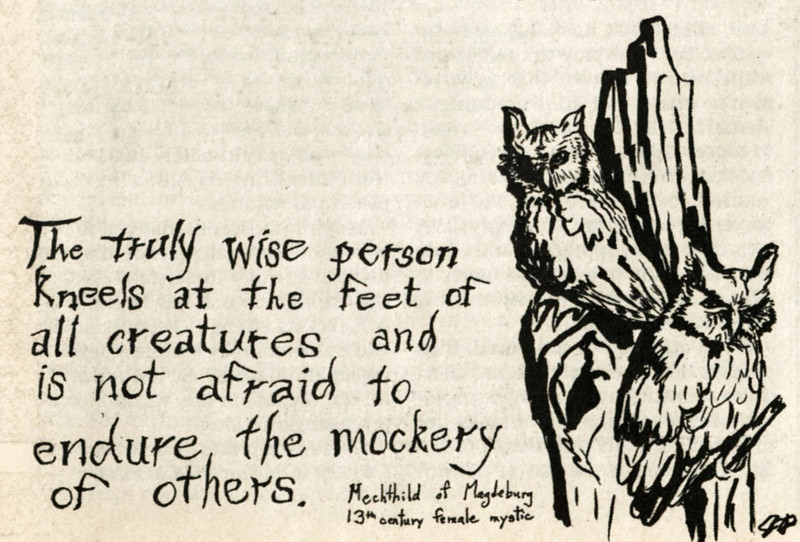 The truly wise person
kneels at the feet of
all creatures and
is not afraid to
endure the mockery
of others.
Mechthild of Magdeburg
13th century female mystic